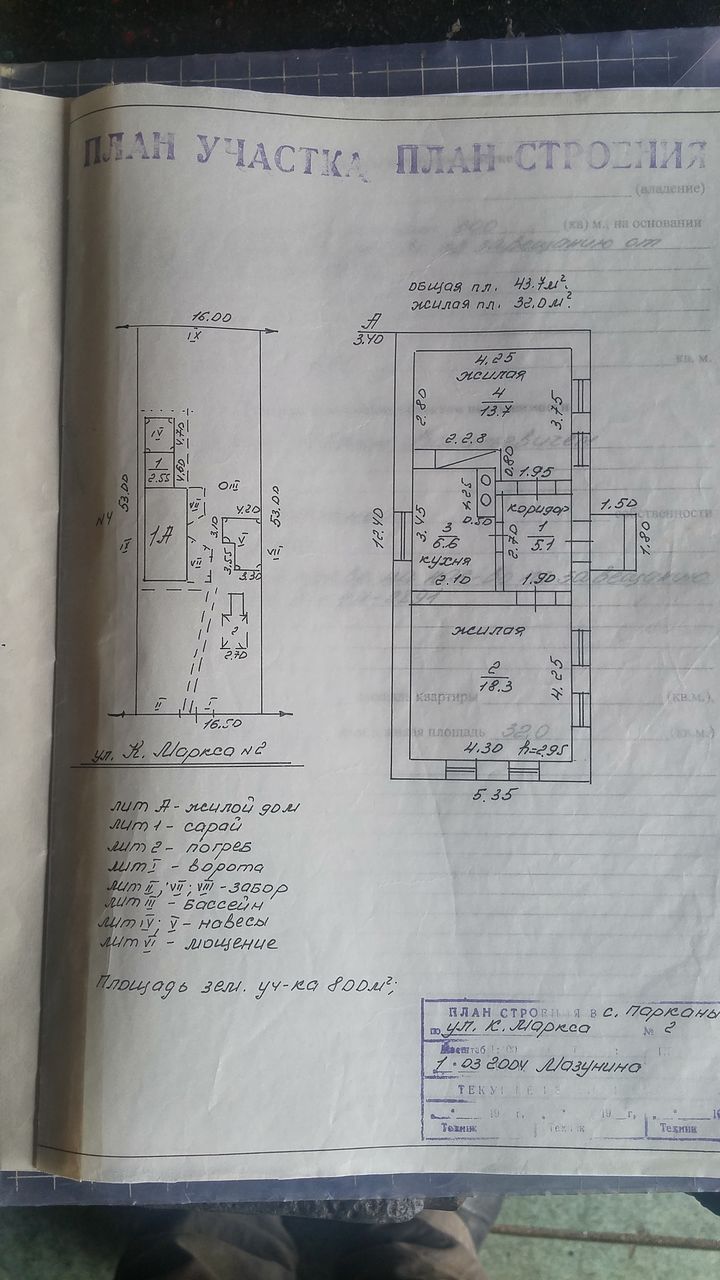 ПЛАН УЧАСТКА ПЛАН СТРОЕНИЯ
(владение)
(кв) м., на основании
завещанию от
общая пл. 43.7м².
жилая пл. 32.0м².
кв. м.
16.00
IX
53.00
N4
IX
IV
4.70
1
2.55
4.60
1А
VII
VII
III
4.20
3.10
V
3.55
3.30
53.00
VIII
2
2.70
II
I
16.50
ул. К. Маркса N2
А
3.40
4.25
жилая
4
13.7
2.80
3.75
2.28
0.80
1.95
1.25
0.50
коридор
1
5.1
1.50
1.80
12.40
3.45
3
6.6
кухня
2.10
2.70
1.90
жилая
2
18.3
4.25
4.30
h=2.95
5.35
квартиры
(кв.м.)
площадь 32,0
(кв.м.)
лит А - жилой дом
лит 1 - сарай
лит 2 - погреб
лит I - ворота
лит II; VII; VIII - забор
лит III - Бассейн
лит IV; V - навесы
лит VI - мощение
Площадь зем. уч-ка 800м²;
ПЛАН СТРОЕНИЯ В с. Парканы
по ул. К. Маркса № 2
Масштаб
1.03 2004 Мазунина
19 г.
19 г.
Техник
Техник
Техник